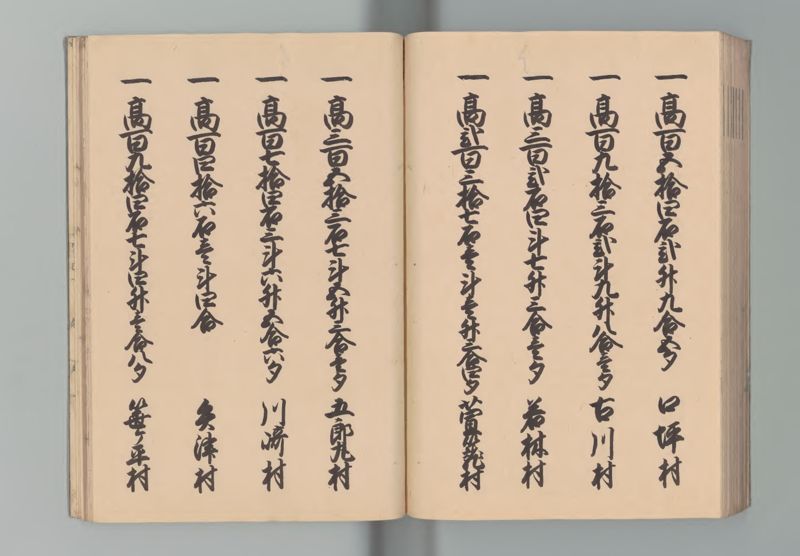 一 高百五拾四石弐升九合五夕 口坪村
一 高百九拾三石弐斗九升八合壱夕 古川村
一 高三百弐石四斗七升三合壱夕 若林村
一 高弐百三拾七石壱斗壱升三合四夕 村
一 高三百五拾三石七斗五升三合壱夕 五郎丸村
一 高百七拾四石三斗六升五合六夕 川崎村
一 高百四拾六石壱斗四合 矢津村
一 高百九拾四石七斗四升壱合八夕 平村